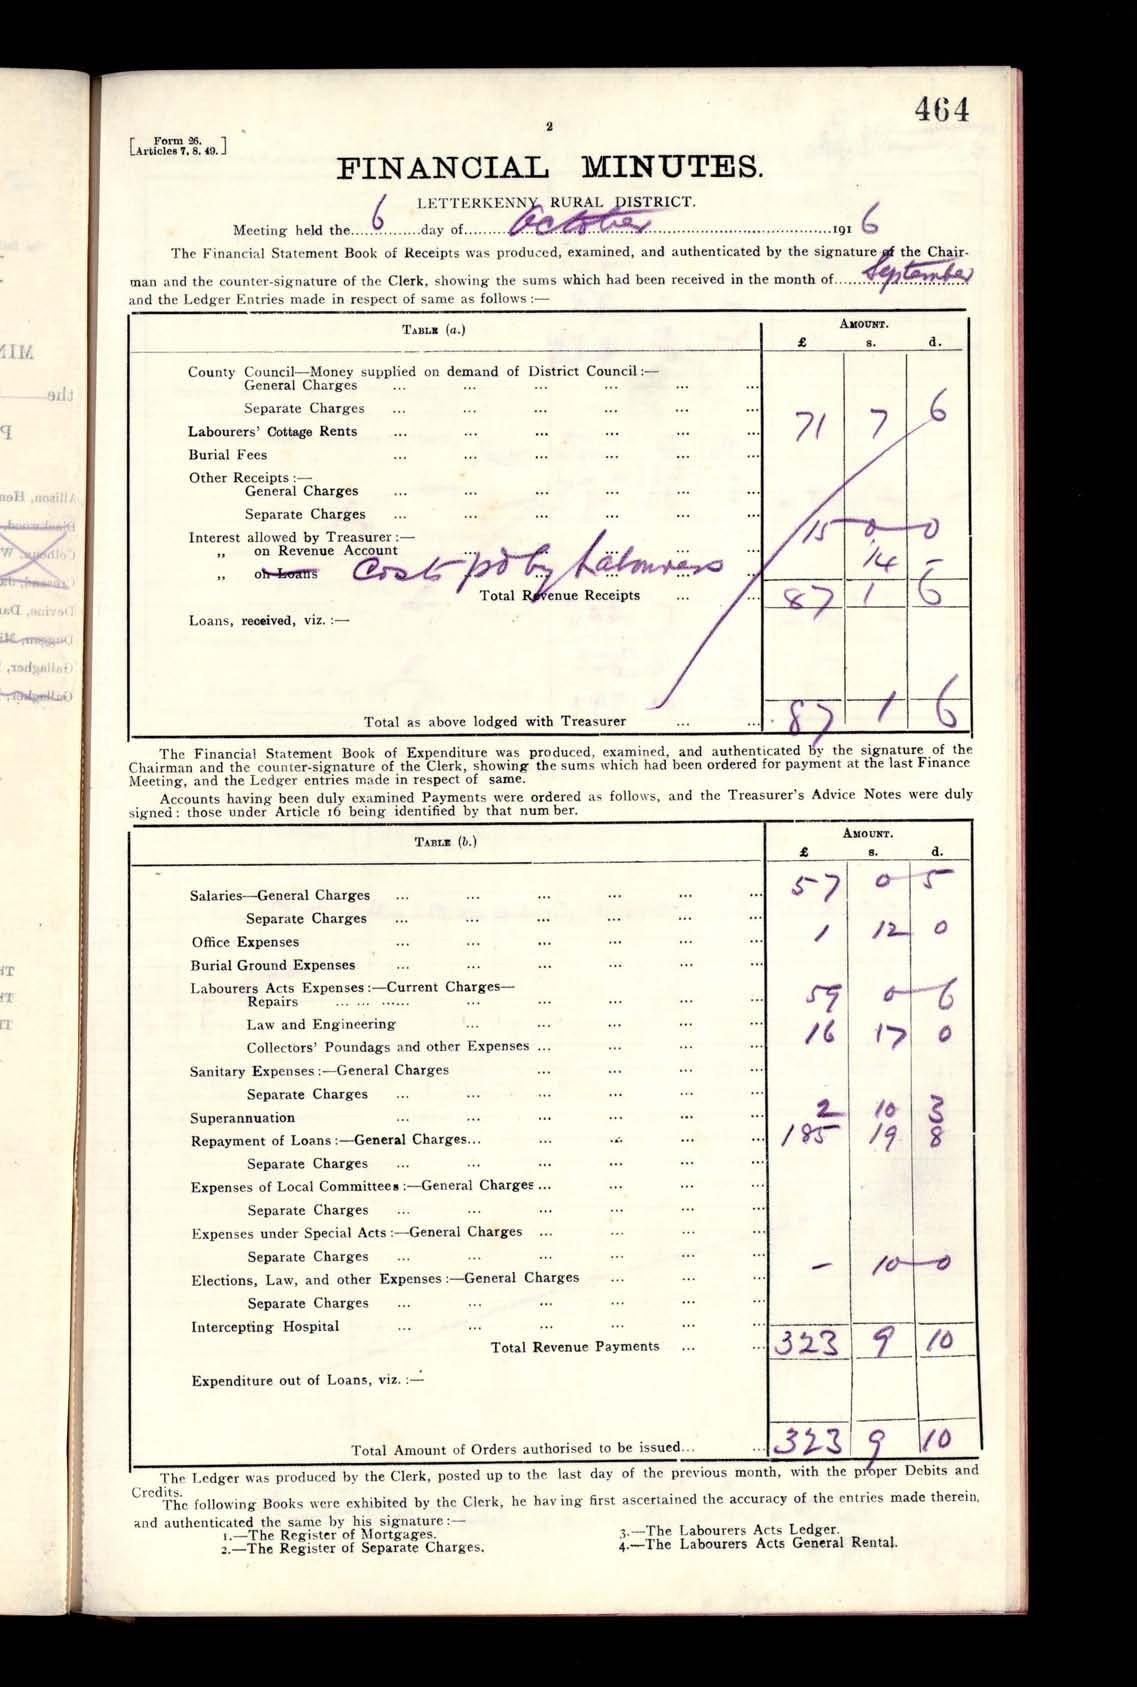 464
2
[ Form 26.
Articles 7, 8, 49. ]
FINANCIAL MINUTES.
LETTERKENNY RURAL DISTRICT.
Meeting held the....6......day of.........October.........191 6
The Financial Statement Book of Receipts was produced, examined, and authenticated by the signature of the Chair-
man and the counter-signature of the Clerk, showing the sums which had been received in the month of......September
and the Ledger Entries made in respect of same as follows :—
TABLE (a.) AMOUNT.
£ s. d.
County Council—Money supplied on demand of District Council :—
General Charges ... ... ... ... ... ...
Separate Charges ... ... ... ... ... ...
Labourers' Cottage Rents ... ... ... ... ... ... 71 7 6
Burial Fees ... ... ... ... ... ...
Other Receipts :—
General Charges ... ... ... ... ... ...
Separate Charges ... ... ... ... ... ...
Interest allowed by Treasurer :— 15 0 0
„ on Revenue Account ... ... ... ... ...
„ on Loans Costs pd by Labourers 14 –
Total Revenue Receipts ... ... 87 1 6
Loans, received, viz. :—
Total as above lodged with Treasurer ... ... 87 1 6
The Financial Statement Book of Expenditure was produced, examined, and authenticated by the signature of the
Chairman and the counter-signature of the Clerk, showing the sums which had been ordered for payment at the last Finance
Meeting, and the Ledger entries made in respect of same.
Accounts having been duly examined Payments were ordered as follows, and the Treasurer's Advice Notes were duly
signed : those under Article 16 being identified by that num ber.
TABLE (b.) AMOUNT.
£ s. d.
Salaries—General Charges ... ... ... ... ... ... 57 0 5
Separate Charges ... ... ... ... ... ...
Office Expenses ... ... ... ... ... ... 1 12 0
Burial Ground Expenses ... ... ... ... ... ...
Labourers Acts Expenses :—Current Charges—
Repairs ... ... ...... ... ... ... ... ... 59 0 6
Law and Engineering ... ... ... ... ... 16 17 0
Collectors' Poundags and other Expenses ... ... ... ...
Sanitary Expenses :—General Charges ... ... ... ...
Separate Charges ... ... ... ... ... ...
Superannuation ... ... ... ... ... ... 2 10 3
Repayment of Loans :—General Charges... ... ... ... ... 185 19 8
Separate Charges ... ... ... ... ... ...
Expenses of Local Committees :—General Charges ... ... ... ...
Separate Charges ... ... ... ... ... ...
Expenses under Special Acts :—General Charges ... ... ... ...
Separate Charges ... ... ... ... ... ...
Elections, Law, and other Expenses :—General Charges ... ... ... – 10 0
Separate Charges ... ... ... ... ... ...
Intercepting Hospital ... ... ... ... ... ...
Total Revenue Payments ... ... 323 9 10
Expenditure out of Loans, viz. :—
Total Amount of Orders authorised to be issued... ... 323 9 10
The Ledger was produced by the Clerk, posted up to the last day of the previous month, with the proper Debits and
Credits.
The following Books were exhibited by the Clerk, he hav ing first ascertained the accuracy of the entries made therein,
and authenticated the same by his signature :—
1.—The Register of Mortgages. 3.—The Labourers Acts Ledger.
2.—The Register of Separate Charges. 4.—The Labourers Acts General Rental.